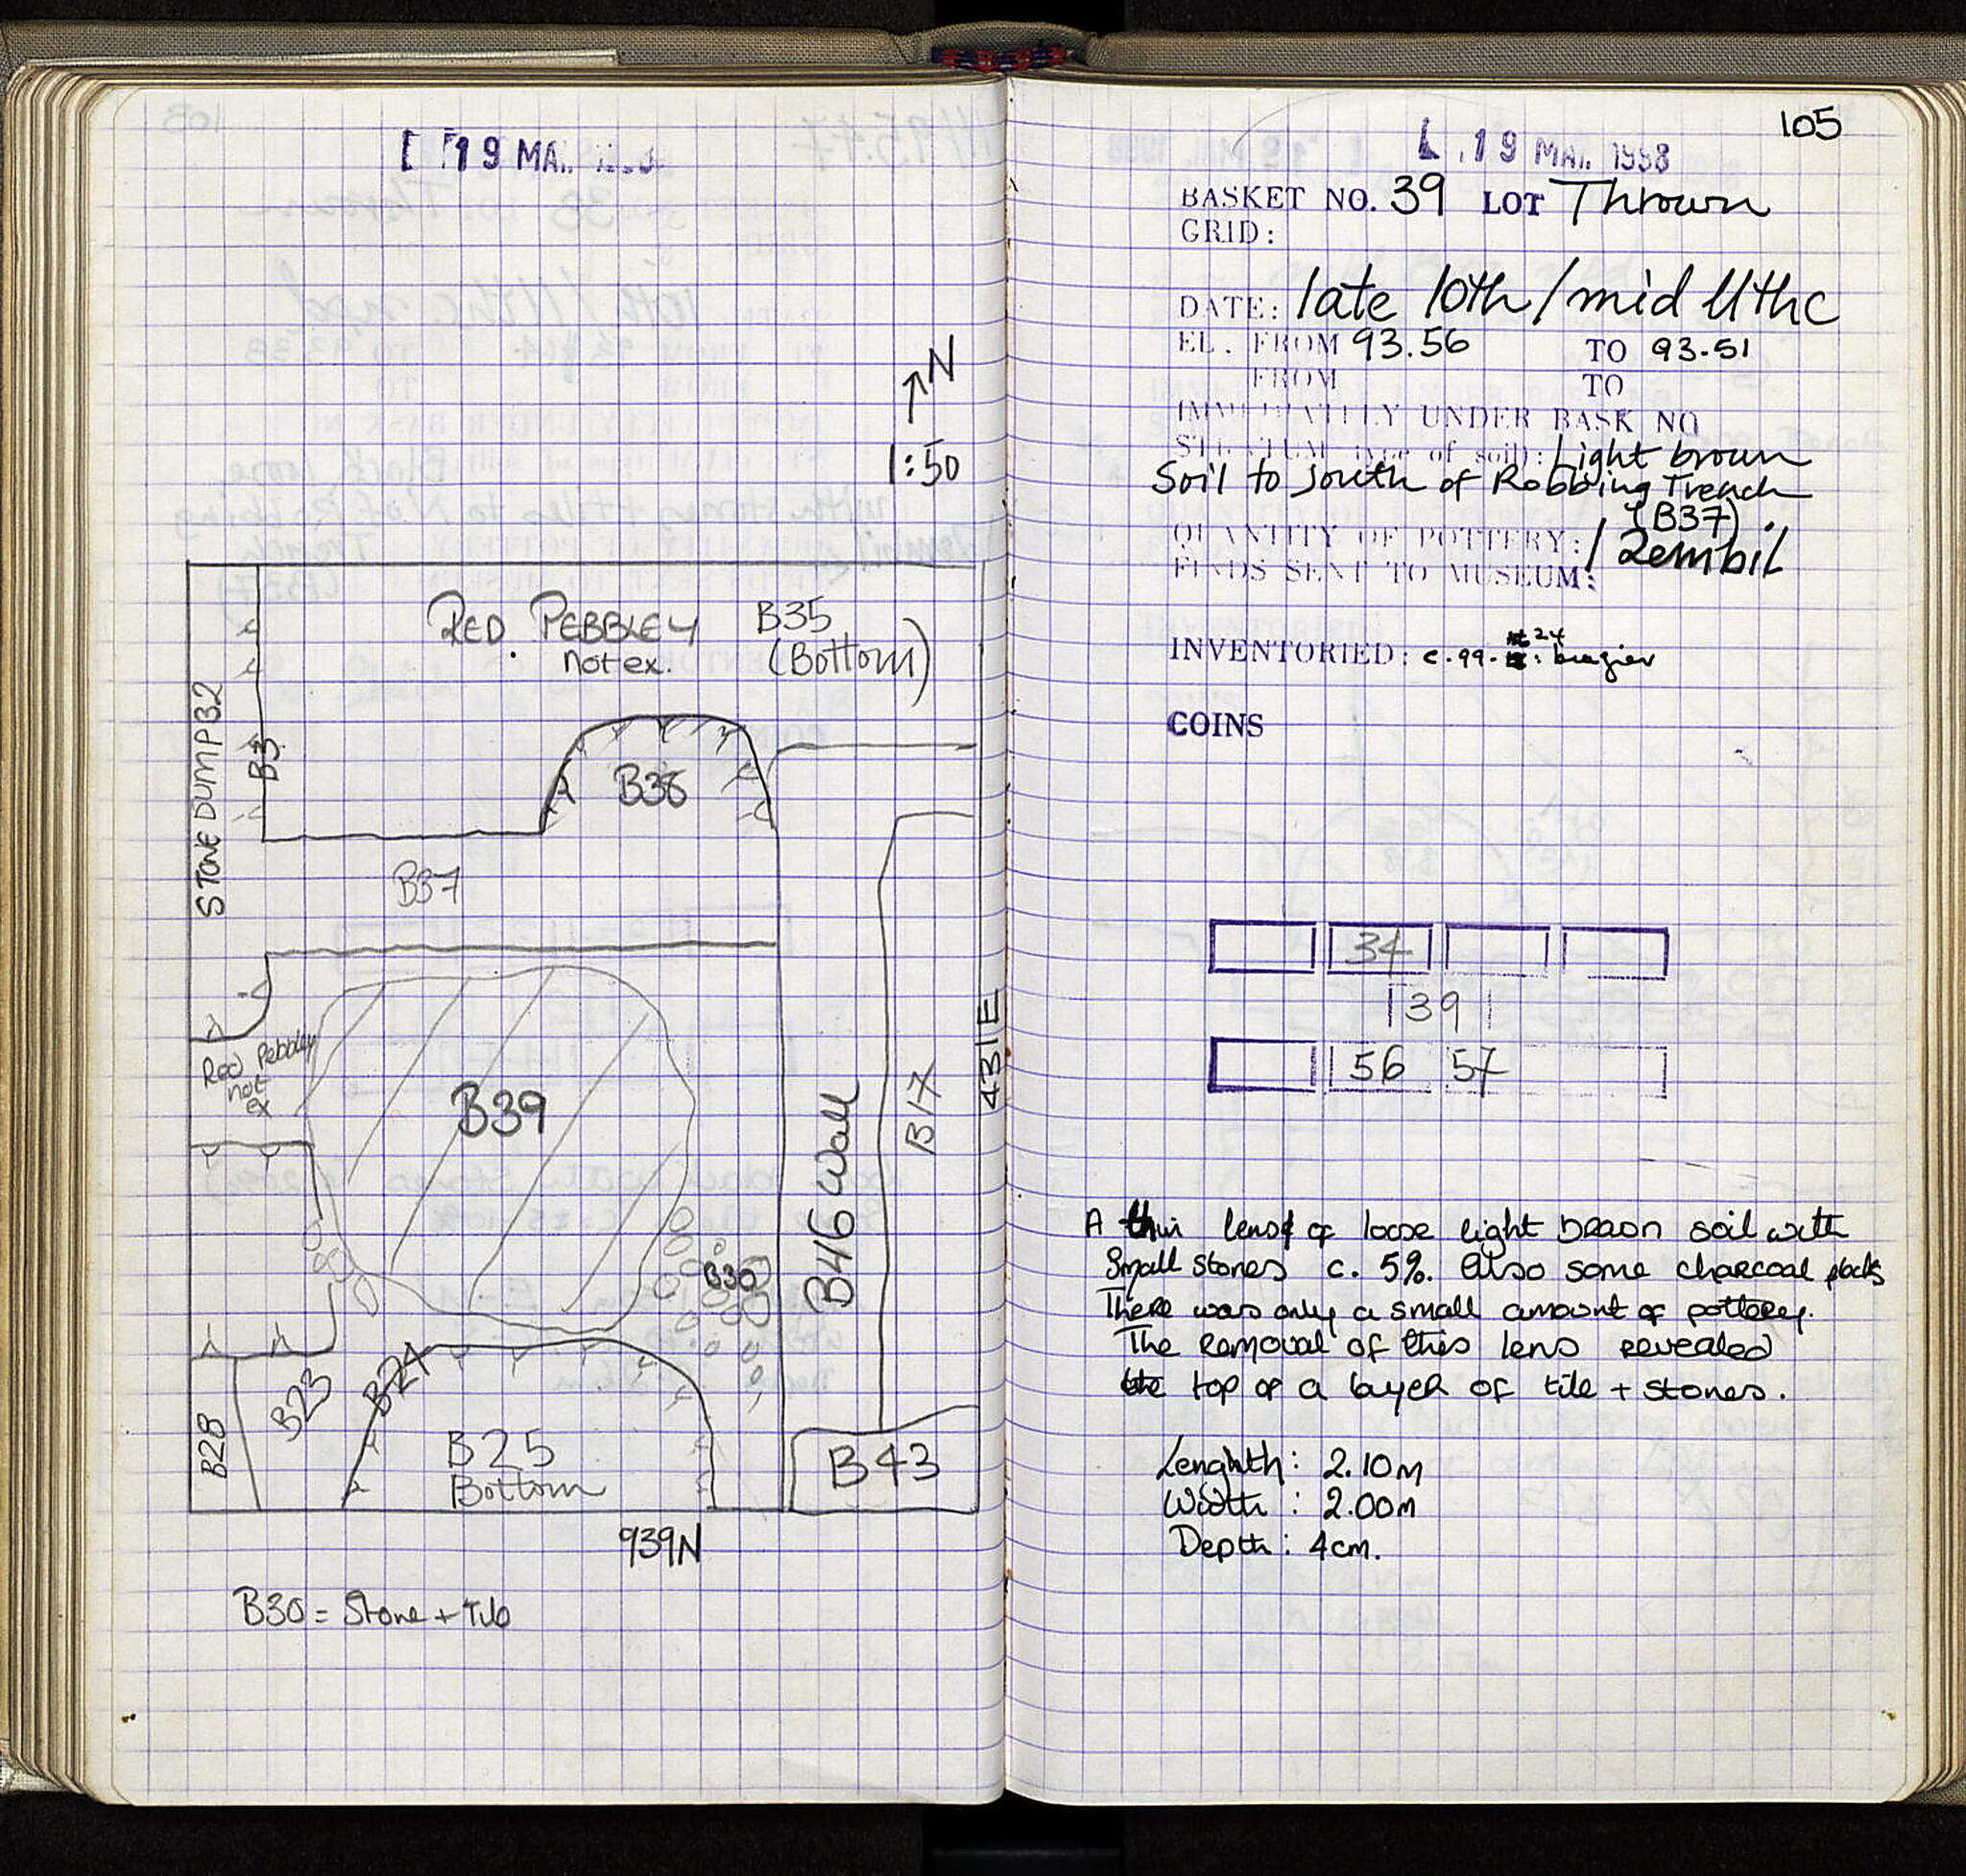 19 MA
↑N
1:50
RED. PEBBLEY B35
not ex. (Bottom)
STONE DUMP B2
B3
B38
B37
Red Pebbley
not
ex
B39
B30
B46 Wall
B17
431E
B28
B23
B24
B25
Bottom
B43
939N
B30 = Stone + Tile
105
19 MAI. 1998
BASKET NO. 39 LOT Thrown
GRID:
DATE: late 10th/mid 11thc
EL. FROM 93.56 TO 93.51
FROM TO
IMMEDIATELY UNDER BASK NO
STRATUM type of soil): Light brown
Soil to South of Robbing Trench
(B37).
QUANTITY OF POTTERY: 1 Zembil
FINDS SENT TO MUSEUM:
INVENTORIED: c.99. 24: brazier
COINS
34
39
56 57
A thin lens of loose light brown soil with
Small stones c. 5%. Also some charcoal flecks
There was only a small amount of pottery.
The removal of this lens revealed
the top of a layer of tile + stones.
Lenghth: 2.10m
Width : 2.00m
Depth: 4cm.